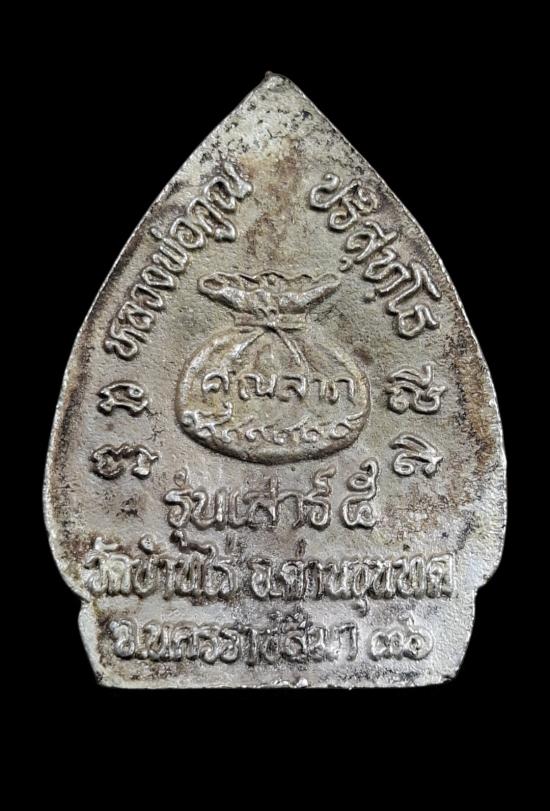 หลวงพ่อคูณ ปริสุทฺโธ
คูณลาภ
๙๙๙๙๙๙๙
รุ่นเสาร์ ๕
วัดบ้านไร่ อ.ด่านขุนทด
จ.นครราชสีมา ๓๖